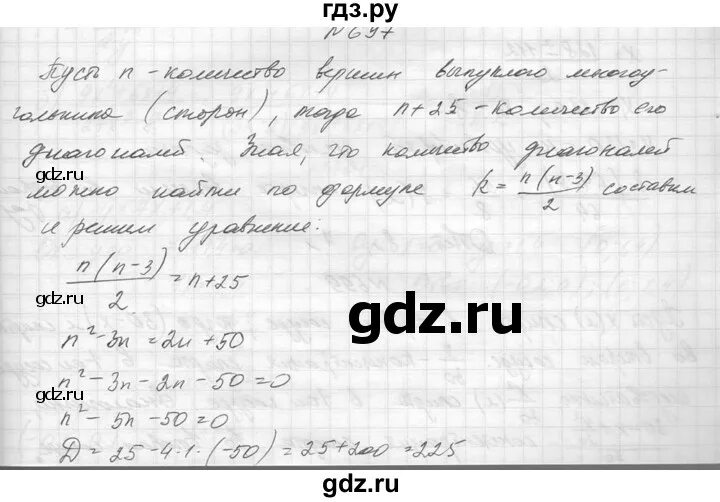 гдз.ру
N 697
Пусть n - количество вершин выпуклого многоу-
гольника (сторон), тогда n + 25 - количество его
диагоналей. Зная, что количество диагоналей
можно найти по формуле k = n(n-3)/2 составим
и решим уравнение:
n(n-3)/2 = n + 25
n² - 3n = 2n + 50
n² - 3n - 2n - 50 = 0
n² - 5n - 50 = 0
D = 25 - 4·1·(-50) = 25 + 200 = 225
gdz.ru
gdz.ru
gdz.ru
gdz.ru
gdz.ru
gdz.ru
gdz.ru